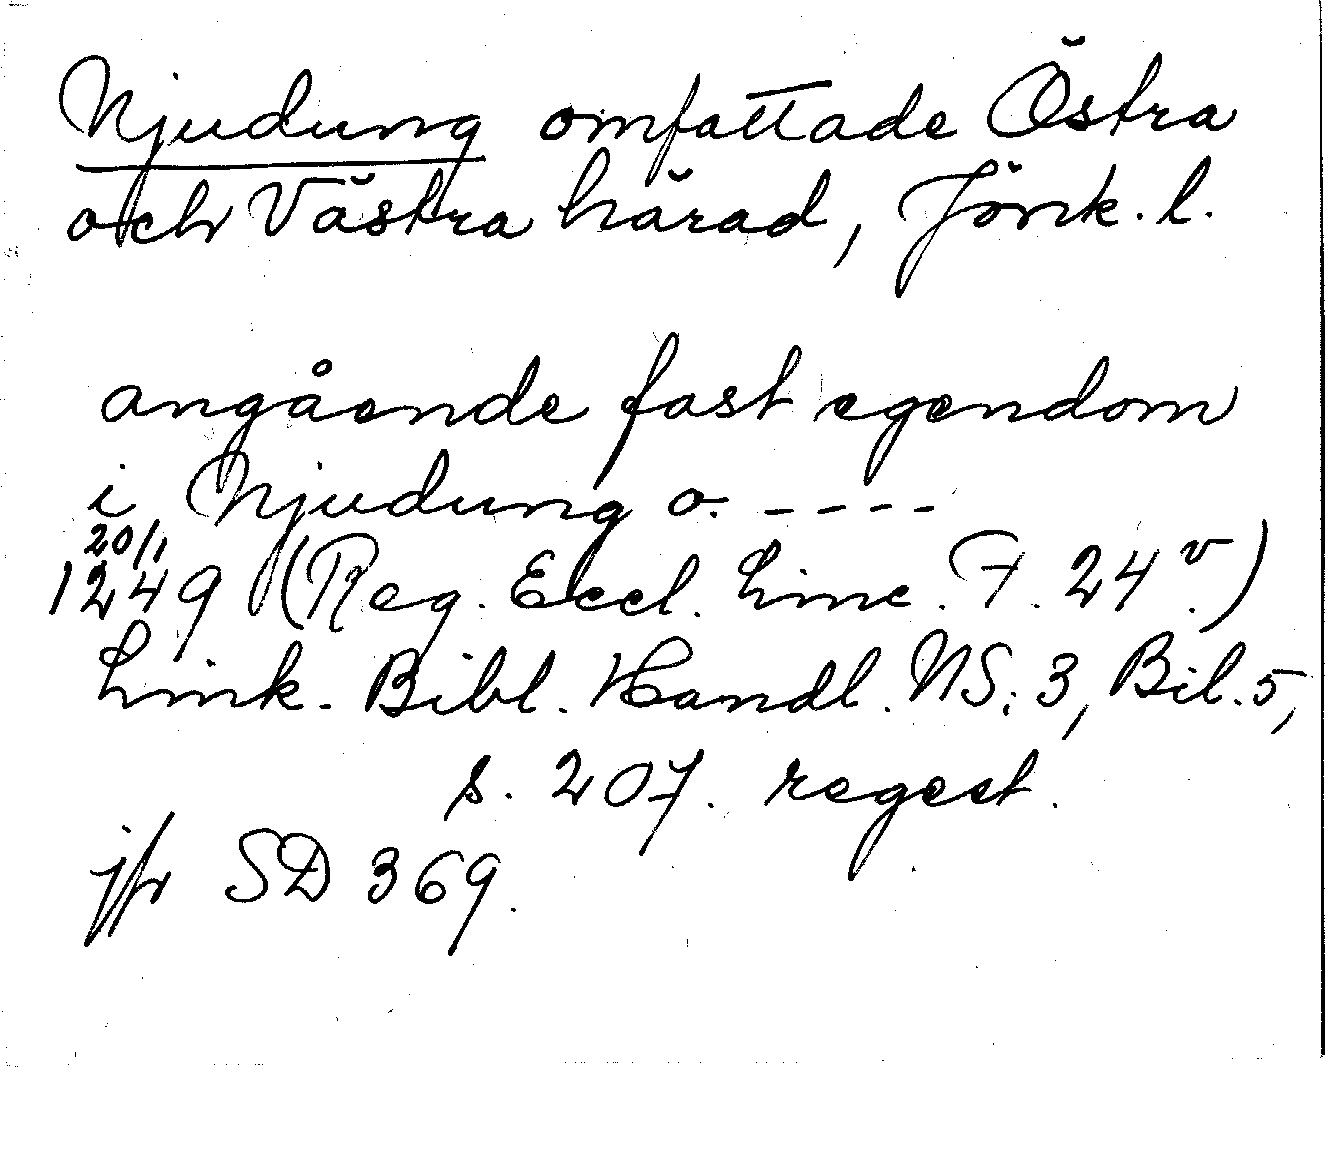 Njudung omfattade Östra
och Västra härad, Jönk. l.
angående fast egendom
i Njudung o. - - - -
20/1
1249 (Reg. Eccl. Linc. F. 24 v.)
Link. Bibl. Handl. NS: 3, Bil. 5,
s. 207. regest.
jfr SD 369.